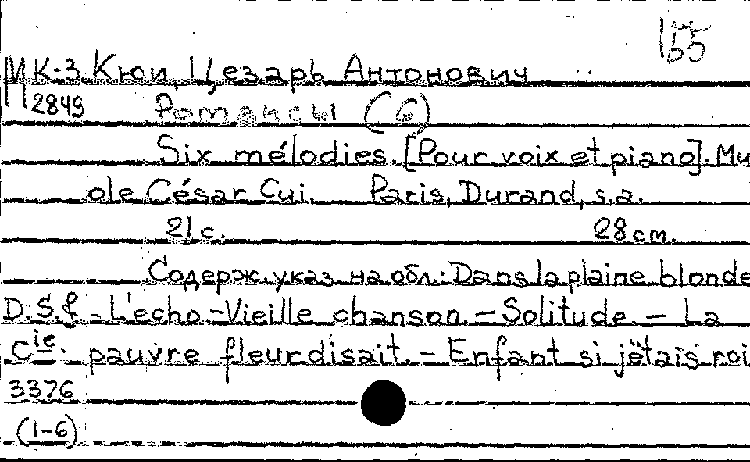 155
МК-3 Кюи, Цезарь Антонович
М 2849 Романсы (6)
Six mélodies. [Pour voix et piano]. Mu
ole César Cui. Paris, Durand, s.a.
21 с. 28 см.
Содерж. указ. на обл.: Dans la plaine blonde
D. S. f. - L'echo. - Vieille chanson. - Solitude - La
Cie. pauvre fleur disait. - Enfant si j'étais roi
3376
(1-6)